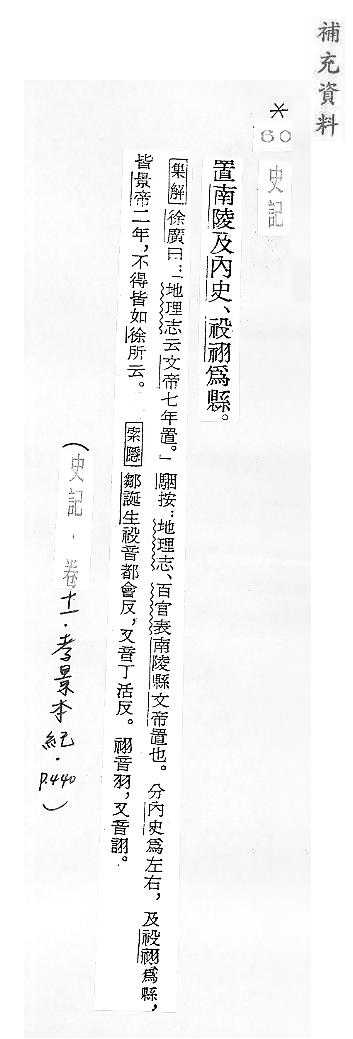 補充資料
*
60 史記
置南陵及內史、祋祤爲縣。
集解 徐廣曰：「地理志云文帝七年置。」駰按：地理志、百官表南陵縣文帝置也。分內史爲左右，及祋祤爲縣，
皆景帝二年，不得皆如徐所云。 索隱 鄒誕生祋音都會反，又音丁活反。祤音羽，又音詡。
（史記．卷十一．孝景本紀．P.440）